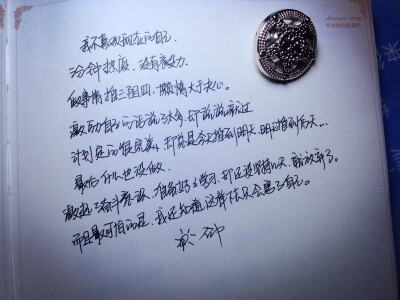 我不喜欢现在的自己.
3分钟热度,没有毅力.
做事情推三阻四,懒惰大于决心。
激励自己的话说了太多,却说说就过
计划定的很完美,却总是今天推到明天,明天推到后天…
最后什么也没做.
激起了奋斗意识,准备好好学习,却还没坚持几天,就放弃了。
而且最可怕的是,我还知道,这样下去只会毁了自己。